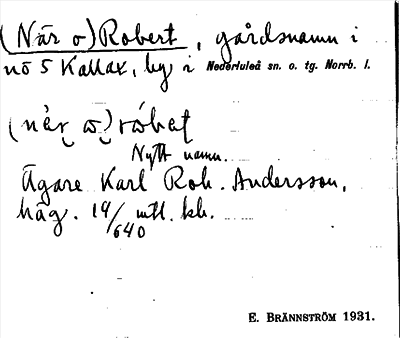 (När o) Robert, gårdsnamn i
nö 5 Kallax, by i Nederluleå sn. o. tg. Norrb. l.
Nytt namn.
Ägare Karl Rob. Andersson,
häg. 19/640 mtl. kb.
E. BRÄNNSTRÖM 1931.